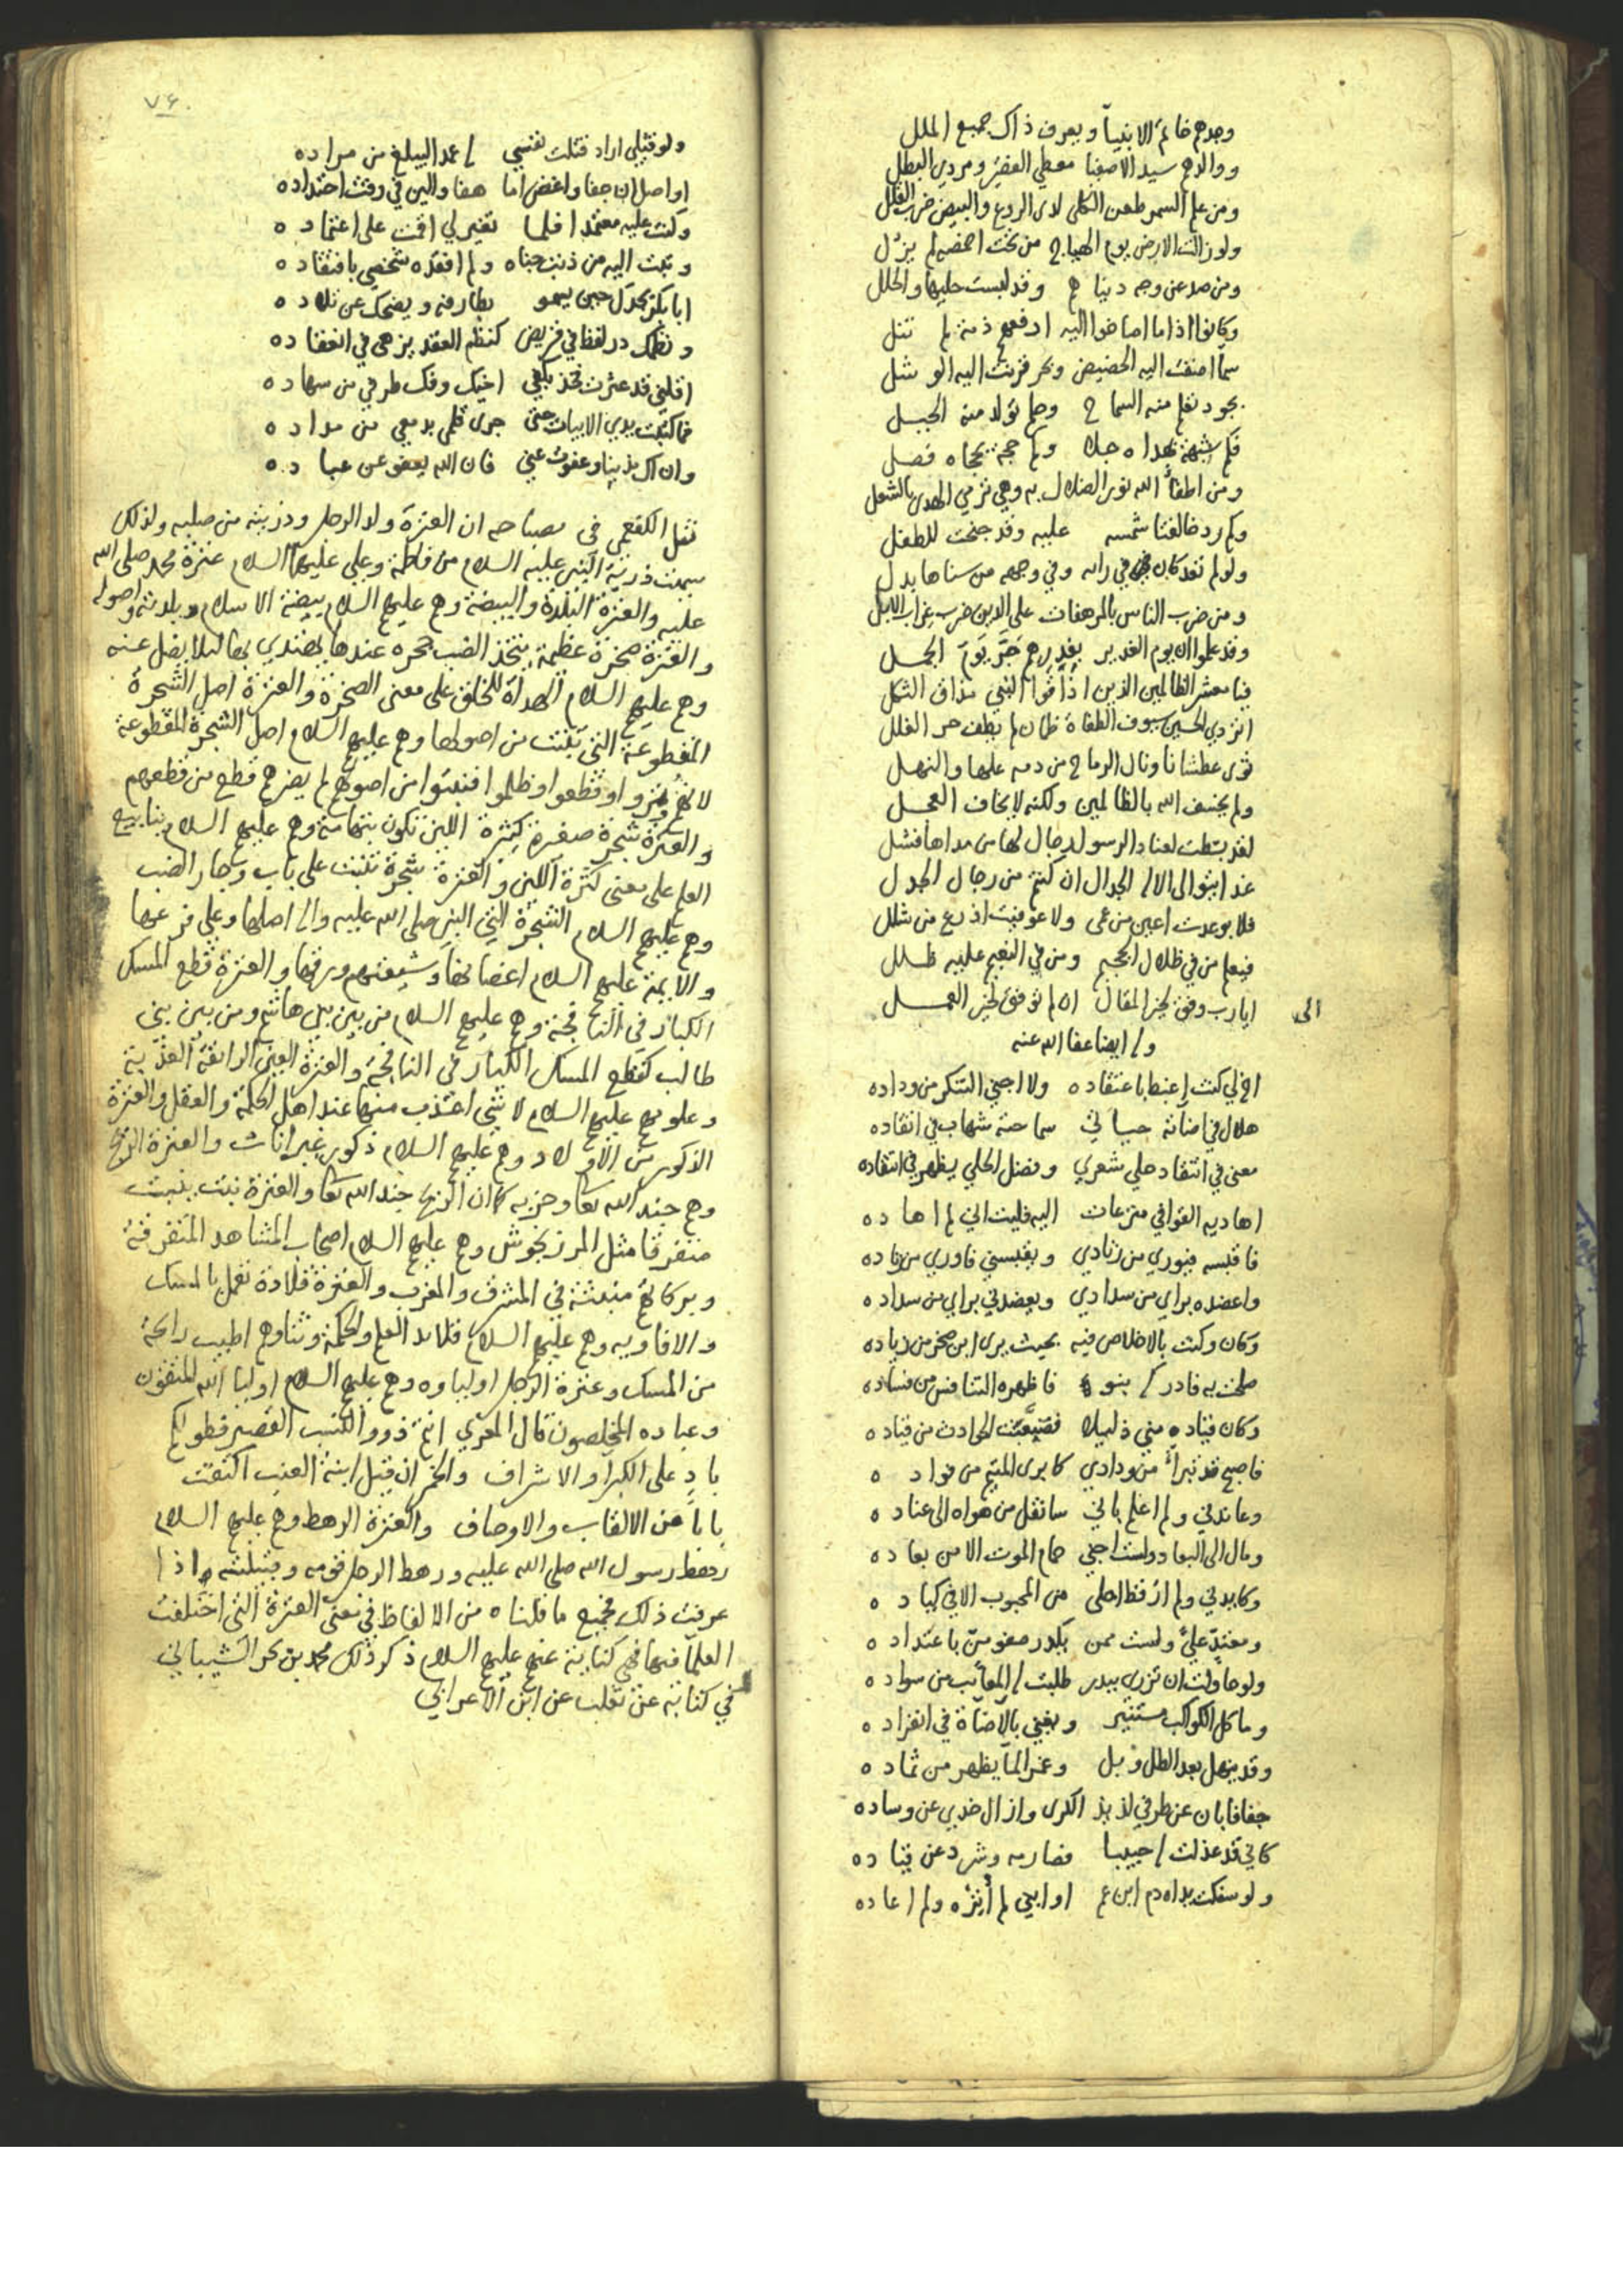 وجدهم خاتم الانبياء ويعرف ذاك جميع الملل
ووالدهم سيد الاصفيا معطي الفقير ومردي البطل
ومن علم السمر طعن الكلى لدى الروع والبيض ضرب القلل
ولو زالت الارض يوم الهياج من تحت اخمصه لم يزل
ومن صد عن وجه دنياهم وقد لبست حليها والحلل
وكانوا اذا ما اضافوا اليه ارفعهم رتبة لم تنل
سماء اضفت اليه الحضيض وبحر قرنت اليه الوشل
بجود تعلم منه السماح وحلم تولد منه الجبل
فكم شبهة بهداه جلا وكم حجة بحجاه فصل
ومن اطفأ الله نور الضلال به وهي ترمي الهدى بالشعل
وكم رد خالقنا شمسه عليه وقد جنحت للطفل
ولو لم تعد كان في رايه وفي وجهه من سناها بدل
ومن ضرب الناس بالمرهفات على الدين ضرب غراب الابل
وقد علموا ان يوم الغدير بغدرهم جر يوم الجمل
فيا معشر الظالمين الذين اذاقوا النبي مذاق الثكل
اتردي الحسين سيوف الطغاة ظمان لم يطف حر الغلل
ثوى عطشانا ونال الرماح من دمه علها والنهل
ولم يخسف الله بالظالمين ولكنه لا يخاف العجل
لقد نشطت لعناد الرسول رجال لها من مداها فشل
فلا بوعدت اعين من عمى ولا عوفيت اذرع من شلل
ومن في النعيم عليه ظلل
ايا رب وفق لخير المقال ان لم توفق لخير العمل
وله ايضا عفا الله عنه
اخ لي كنت اغبط باعتقاده ولا اخشى التنكر من وداده
هلال في اضائة حيا في سماحته شهاب في اتقاده
معنى في انتقاد حلي شعري وفضل الحلي يظهر في انتقاده
اهاديه القوافي منزعات اليه فليت اني لم اهاده
فاقبسه فيوري من زنادي ويقبسني فاوري من زناده
واعضده براي من سدادي ويعضدني براي من سداده
وكان وكنت بالاخلاص فيه بحيث يرى ابن صخر من زياده
فاظهره التنافس من فساده
وكان قياده مني ذليلا فصعبت الحوادث من قياده
فاصبح قد تبرأ من ودادي كما يرى المتيم من فواده
وعاندني ولم اعلم باني سانقل من هواه الى عناده
ومال الى البعاد ولست اخشى حمام الموت الا من بعاده
وكايدني ولم ار قط احلى من المحبوب الا في كياده
ومعتد علي ولست ممن يكدر صفو من باعتداده
ولو حاولت ان تزري ببدر طلبت له المعائب من سواده
وما كل الكواكب مستنير ويغني بالاضاة في انفراده
وقد ينهل بعد الطل وبل وغمر الماء يظهر من ثماده
جفا فابان عن طرفي لذيذ الكرى وازال خدي عن وساده
كاني قد عذلت له حبيبا فصارمه وشرد عن قياده
ولو سفكت يداه دم ابن عم او ابني لم أثره ولم اعاده
الى
٧٤
ولو قتلي اراد قتلت نفسي له عمدا ليبلغ من مراده
اواصل ان جفا واغض اما هفا والين في وقت احتداده
وكنت عليه معتمدا فلما تغير لي اقمت على اعتماده
وتبت اليه من ذنب جناه ولم افقده شخصي بافتقاده
ابا بكر بجدك حين يسمو بطارفه ويضحك عن تلاده
ونظمك در لفظ في قريض كنظم العقد يزهى في انعقاده
اقلني قد عثرت فخذ بكفي اخيك وفك طرفي من سهاده
فما كتبت يدي الابيات حتى جرى قلمي بدمعي من مداده
وان اك مذنبا وعفوت عني فان الله يعفو عن عباده
نقل الكفعمي في مصباحه ان العترة ولد الرجل وذريته من صلبه ولذلك
سميت ذرية النبي عليه السلام من فاطمة وعلي عليهما السلام عترة محمد صلى الله
عليه والعترة البلدة والبيضة وهم عليهم السلام بيضة الاسلام وبلدته واصوله
والعترة صخرة عظيمة يتخذ الضب جحره عندها يهتدي بها ليلا يضل عنه
وهم عليهم السلام الهداة للخلق على معنى الصخرة والعترة اصل الشجرة
المقطوعة التي تنبت من اصولها وهم عليهم السلام اصل الشجرة المقطوعة
لانهم وتروا وقطعوا وظلموا فنبتوا من اصولهم لم يضرهم قطع من قطعهم
والعترة شجرة صغيرة كثيرة اللبن تكون بتهامة وهم عليهم السلام ينابيع
العلم على معنى كثرة اللبن والعترة شجرة تنبت على باب وجار الضب
وهم عليهم السلام الشجرة التي النبي صلى الله عليه واله اصلها وعلي فرعها
والايمة عليهم السلام اغصانها وشيعتهم ورقها والعترة قطع المسك
الكبار في النافجة وهم عليهم السلام من بين بني هاشم ومن بين بني
طالب كقطع المسك الكبار في النافجة والعترة العين الرائقة العذبة
وعلومهم عليهم السلام لا شي اعذب منها عند اهل الحكمة والعقل والعترة
الذكور من الاولاد وهم عليهم السلام ذكور غير اناث والعترة الريح
وهم جند الله تعا وحزبه كما ان الريح جند الله تعا والعترة نبت ينبت
متفرقا مثل المرزنجوش وهم عليهم السلام اصحاب المشاهد المتفرقة
وبركاتهم منبثة في المشرق والمغرب والعترة قلادة تعمل بالمسك
والافاويه وهم عليهم السلام قلائد العلم والحكمة وثناوهم اطيب رائحة
من المسك وعترة الرجل اولياوه وهم عليهم السلام اوليا الله المتقون
وعباده المخلصون قال المعري انتم ذوو النسب القصير فطولكم
باد على الكبرا والاشراف والخمر ان قيل ابنة العنب اكتفت
باباً عن الالقاب والاوصاف والعترة الرهط وهم عليهم السلام
رهط رسول الله صلى الله عليه ورهط الرجل قومه وقبيلته واذا
عرفت ذلك فجميع ما قلناه من الالفاظ في معنى العترة التي اختلفت
العلما فيها فهي كناية عنهم عليهم السلام ذكر ذلك محمد بن بحر الشيباني
في كتابه عن ثعلب عن ابن الاعرابي